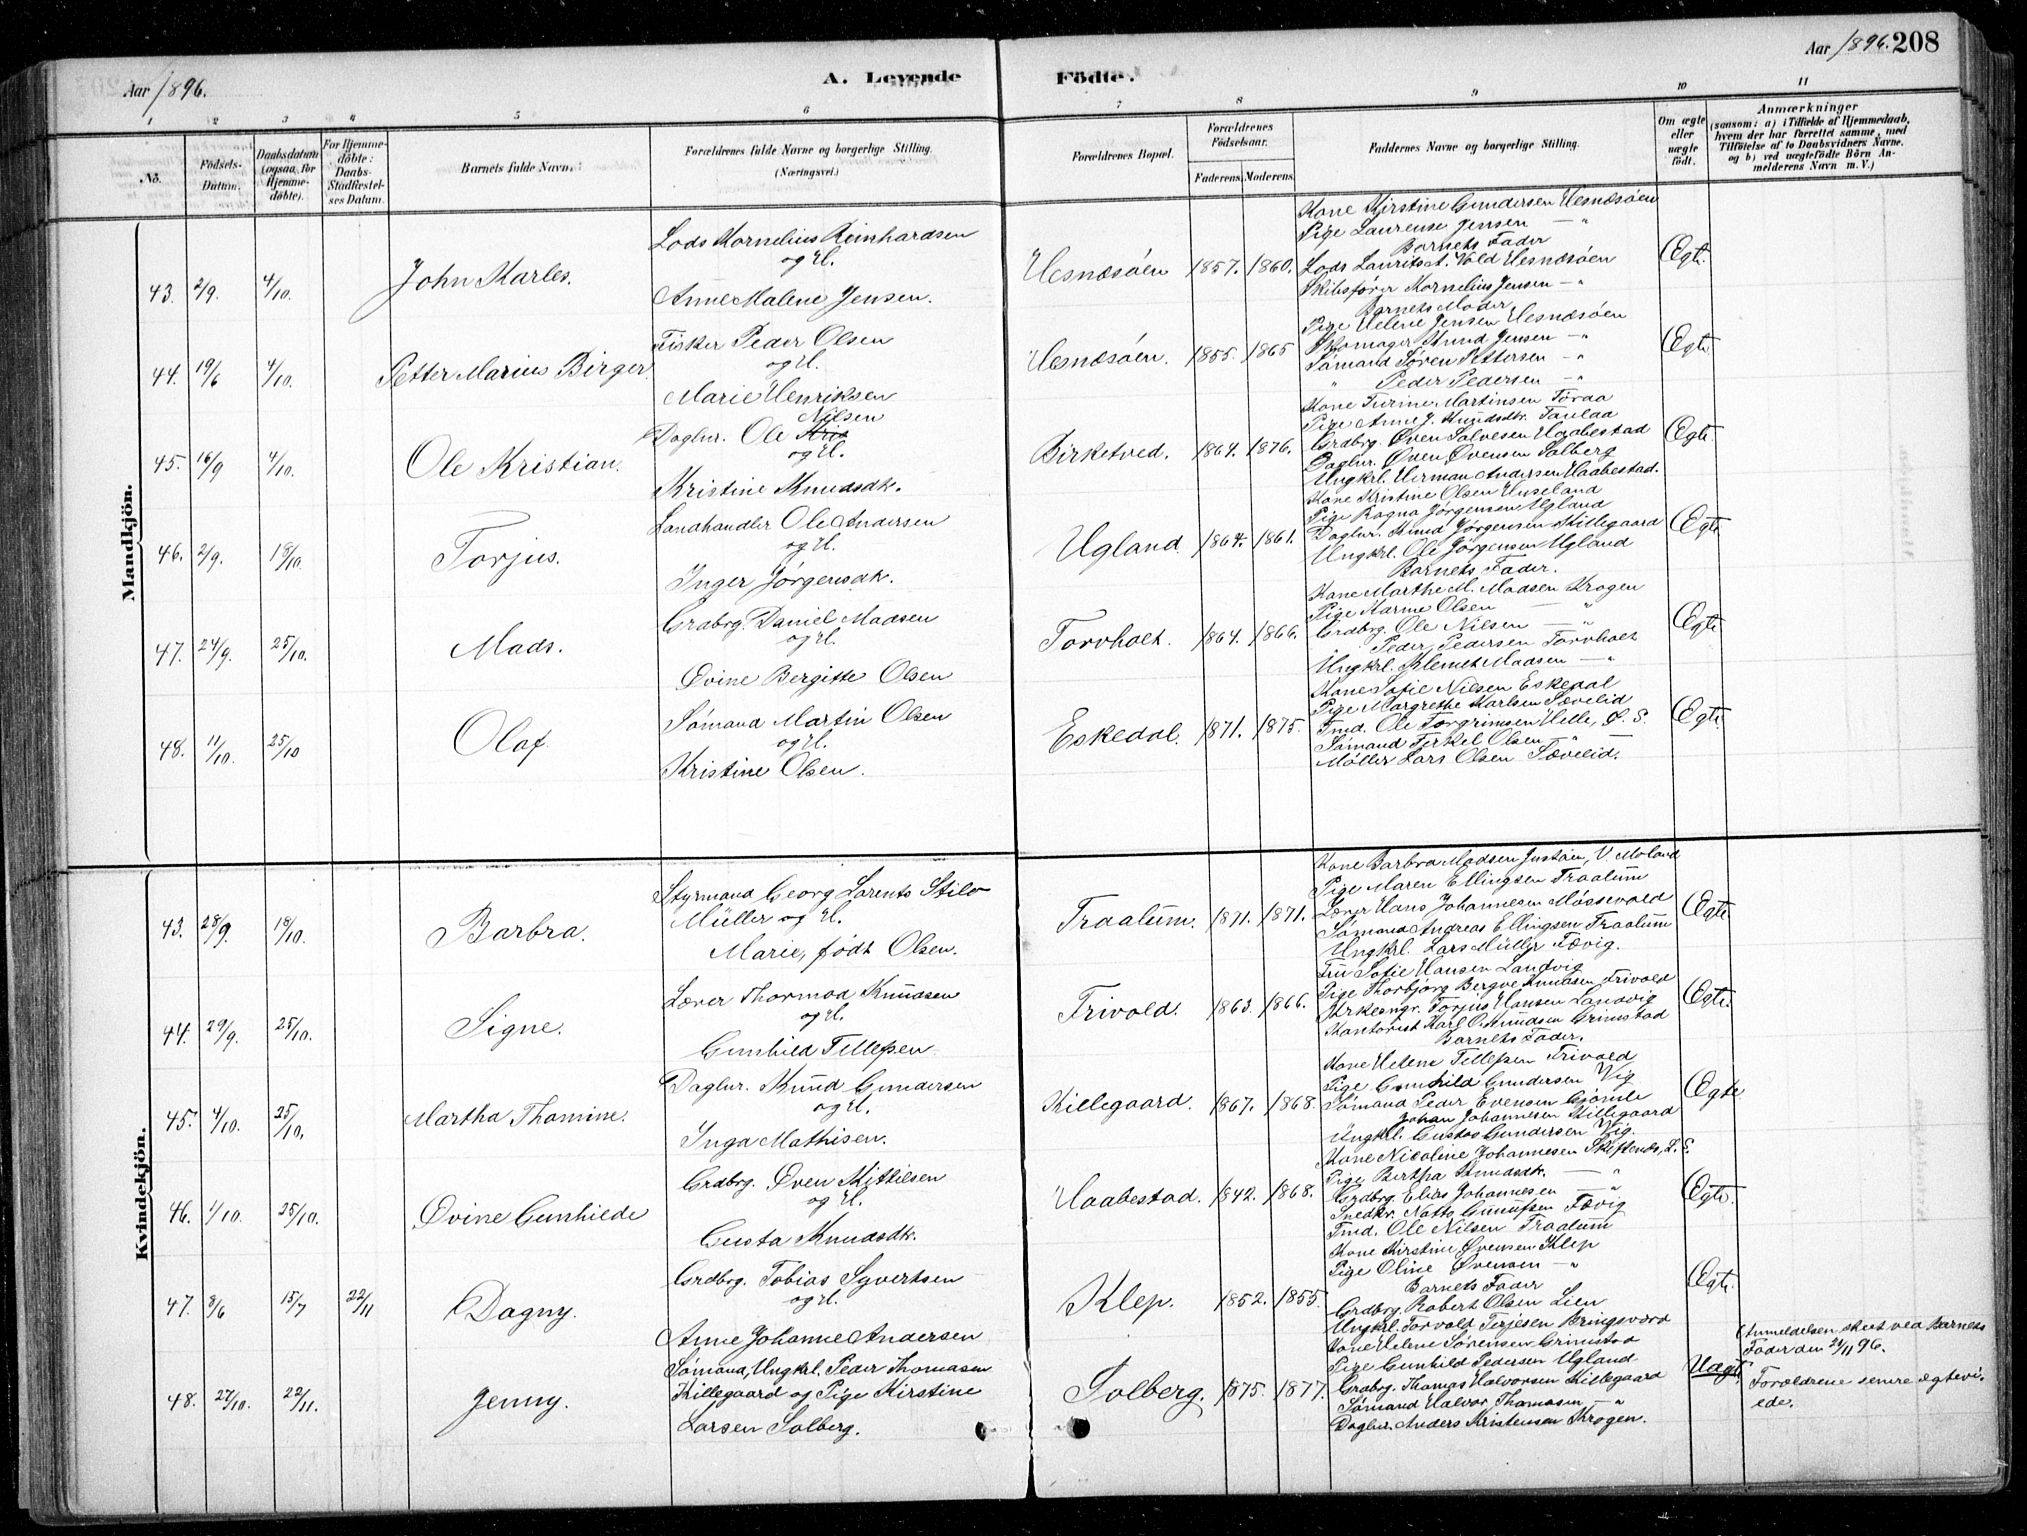 Aar 1896.
A. Levende
Födte.
Aar 1896. 208
1 2 3 4 5 6 7 8 9 10 11
No.
Födsels-
Datum.
Daabsdatum
(ogsaa for
Hjemme-
döbte).
For Hjemme-
döbte:
Daabs-
Stadfæstel-
ses Datum.
Barnets fulde Navn.
Forældrenes fulde Navne og borgerlige Stilling.
(Næringsvei.)
Forældrenes Bopæl.
Forældrenes
Födselsaar.
Faderens. Moderens.
Faddernes Navne og borgerlige Stilling.
Om ægte
eller
uægte
födt.
Anmærkninger
(saasom: a) i Tilfælde af Hjemmedaab,
hvem der har forrettet samme, med
Tilföielse af to Daabsvidners Navne,
og b) ved uægtefödte Börn An-
melderens Navn m. V.)
Mandkjön.
43. 2/9. 4/10. John Karles.
Lods Kornelius Reinhardsen
og H.
Anne Malene Jensen.
Hesnæsøen 1857. 1860.
Kone Kirstine Gundersen Hesnæsøen
Pige Laurense Jensen — "
Barnets Fader
Lods Laurits A. Vold Hesnæsøen
Skibsfører Kornelius Jensen — "
Ægte.
44. 19/6 4/10. Petter Marius Birger.
Fisker Peder Olsen
og H.
Marie Henriksen
Hesnæsøen. 1855. 1865
Barnets Moder
Pige Helene Jensen Hesnæsøen
Skomager Knud Jensen — "
Sømand Søren Pettersen — "
" Peder Pedersen — "
Ægte
45. 16/9 4/10. Ole Kristian.
Nilsen
Daglnr. Ole
og H.
Kristine Knudsdtr.
Birketved. 1864. 1876.
Kone Turine Martinsen Foraa
Pige Anne J. Knudsdtr. Taulaa
Grdbrg. Øven Salvesen Haabestad
Daglnr. Øven Øvensen Solberg
Ungkrl. Herman Andersen Haabestad.
Ægte.
46. 2/9. 18/10. Torjus.
Landhandler Ole Andersen
og H.
Inger Jørgensdtr.
Ugland 1864. 1861.
Kone Kristine Olsen Huseland
Pige Ragna Jørgensen Ugland
Daglnr. Knud Jørgensen Killegaard
Ungkrl. Ole Jørgensen Ugland
Barnets Fader.
Ægte
47. 24/9. 25/10. Mads.
Grdbrg. Daniel Madsen
og H.
Øvine Bergitte Olsen
Torvholt. 1864. 1866.
Kone Marthe M. Madsen Krogen
Pige Karine Olsen — "
Grdbrg. Ole Nilsen — "
" Peder Pedersen Torvholt
Ungkrl. Klemet Madsen — "
Ægte
48. 11/10. 25/10 Olaf.
Sømand Martin Olsen
og H.
Kristine Olsen.
Eskedal. 1871. 1875.
Kone Sofie Nilsen Eskedal
Pige Margrethe Karlsen Sævelid
Fmd. Ole Torgrimsen Helle, Ø. S.
Sømand Terkel Olsen — "
Møller Lars Olsen Sævelid.
Ægte.
Kvindekjön.
43. 28/9. 18/10. Barbra.
Styrmand Georg Lorents Stilo
Müller og H.
Marie, født Olsen.
Traalum. 1871. 1871.
Kone Barbra Madsen Justøen, V. Moland
Pige Maren Ellingsen Traalum
Lærer Hans Johannesen Møssevold
Sømand Andreas Ellingsen Traalum
Ungkrl. Lars Müller Fævig.
Ægte.
44. 29/9. 25/10. Signe.
Lærer Thormod Knudsen
og H.
Gunhild Tellefsen
Trivold. 1863. 1866.
Fru Sofie Hansen Landvig
Pige Thorbjørg Bergve Knudsen Trivold
Kirkesngr. Torjus Hansen Landvig
Kontorist Karl O. Knudsen Grimstad
Barnets Fader.
Ægte.
45. 4/10. 25/10. Martha Thomine.
Daglnr. Knud Gundersen
og H.
Inga Mathisen.
Killegaard. 1867. 1868.
Kone Helene Tellefsen Trivold
Pige Gunhild Gundersen Vig
Sømand Peder Evensen Gjømle
Johan Johannesen Killegaard
Ungkrl. Gustav Gundersen Vig.
Ægte
46. 1/10. 25/10. Øvine Gunhilde
Grdbrg. Øven Kittilsen
og H.
Gusta Knudsdtr.
Haabestad. 1842. 1868.
Kone Nicoline Johannesen Skiftenes, L. E.
Pige Bertha Knudsdtr. — "
Grdbrg. Elias Johannesen — "
Snedkr. Natto Gunufsen Fævig
Fmd. Ole Nilsen Traalum
Ægte.
47. 8/6 15/7 22/11 Dagny.
Grdbrg. Tobias Syvertsen
og H.
Anne Johanne Andersen
Klep. 1852. 1855.
Kone Kirstine Øvensen Klep
Pige Oline Øvensen — "
Barnets Fader
Grdbrg. Robert Olsen Lien
Ungkrl. Torvald Terjesen Bringsværd
Ægte.
48. 27/10. 22/11. Jenny.
Sømand, Ungkrl. Peder Thomasen
Killegaard og Pige Kirstine
Larsen Solberg.
Solberg. 1875. 1877.
Kone Helene Sørensen Grimstad
Pige Gunhild Pedersen Ugland
Grdbrg. Thomas Halvorsen Killegaard
Sømand Halvor Thomasen — "
Daglnr. Anders Kristensen Krogen.
Uægt.
Anmeldelsen skeet ved Barnets
Fader den 21/11 96.
Forældrene senere ægtevi-
ede.